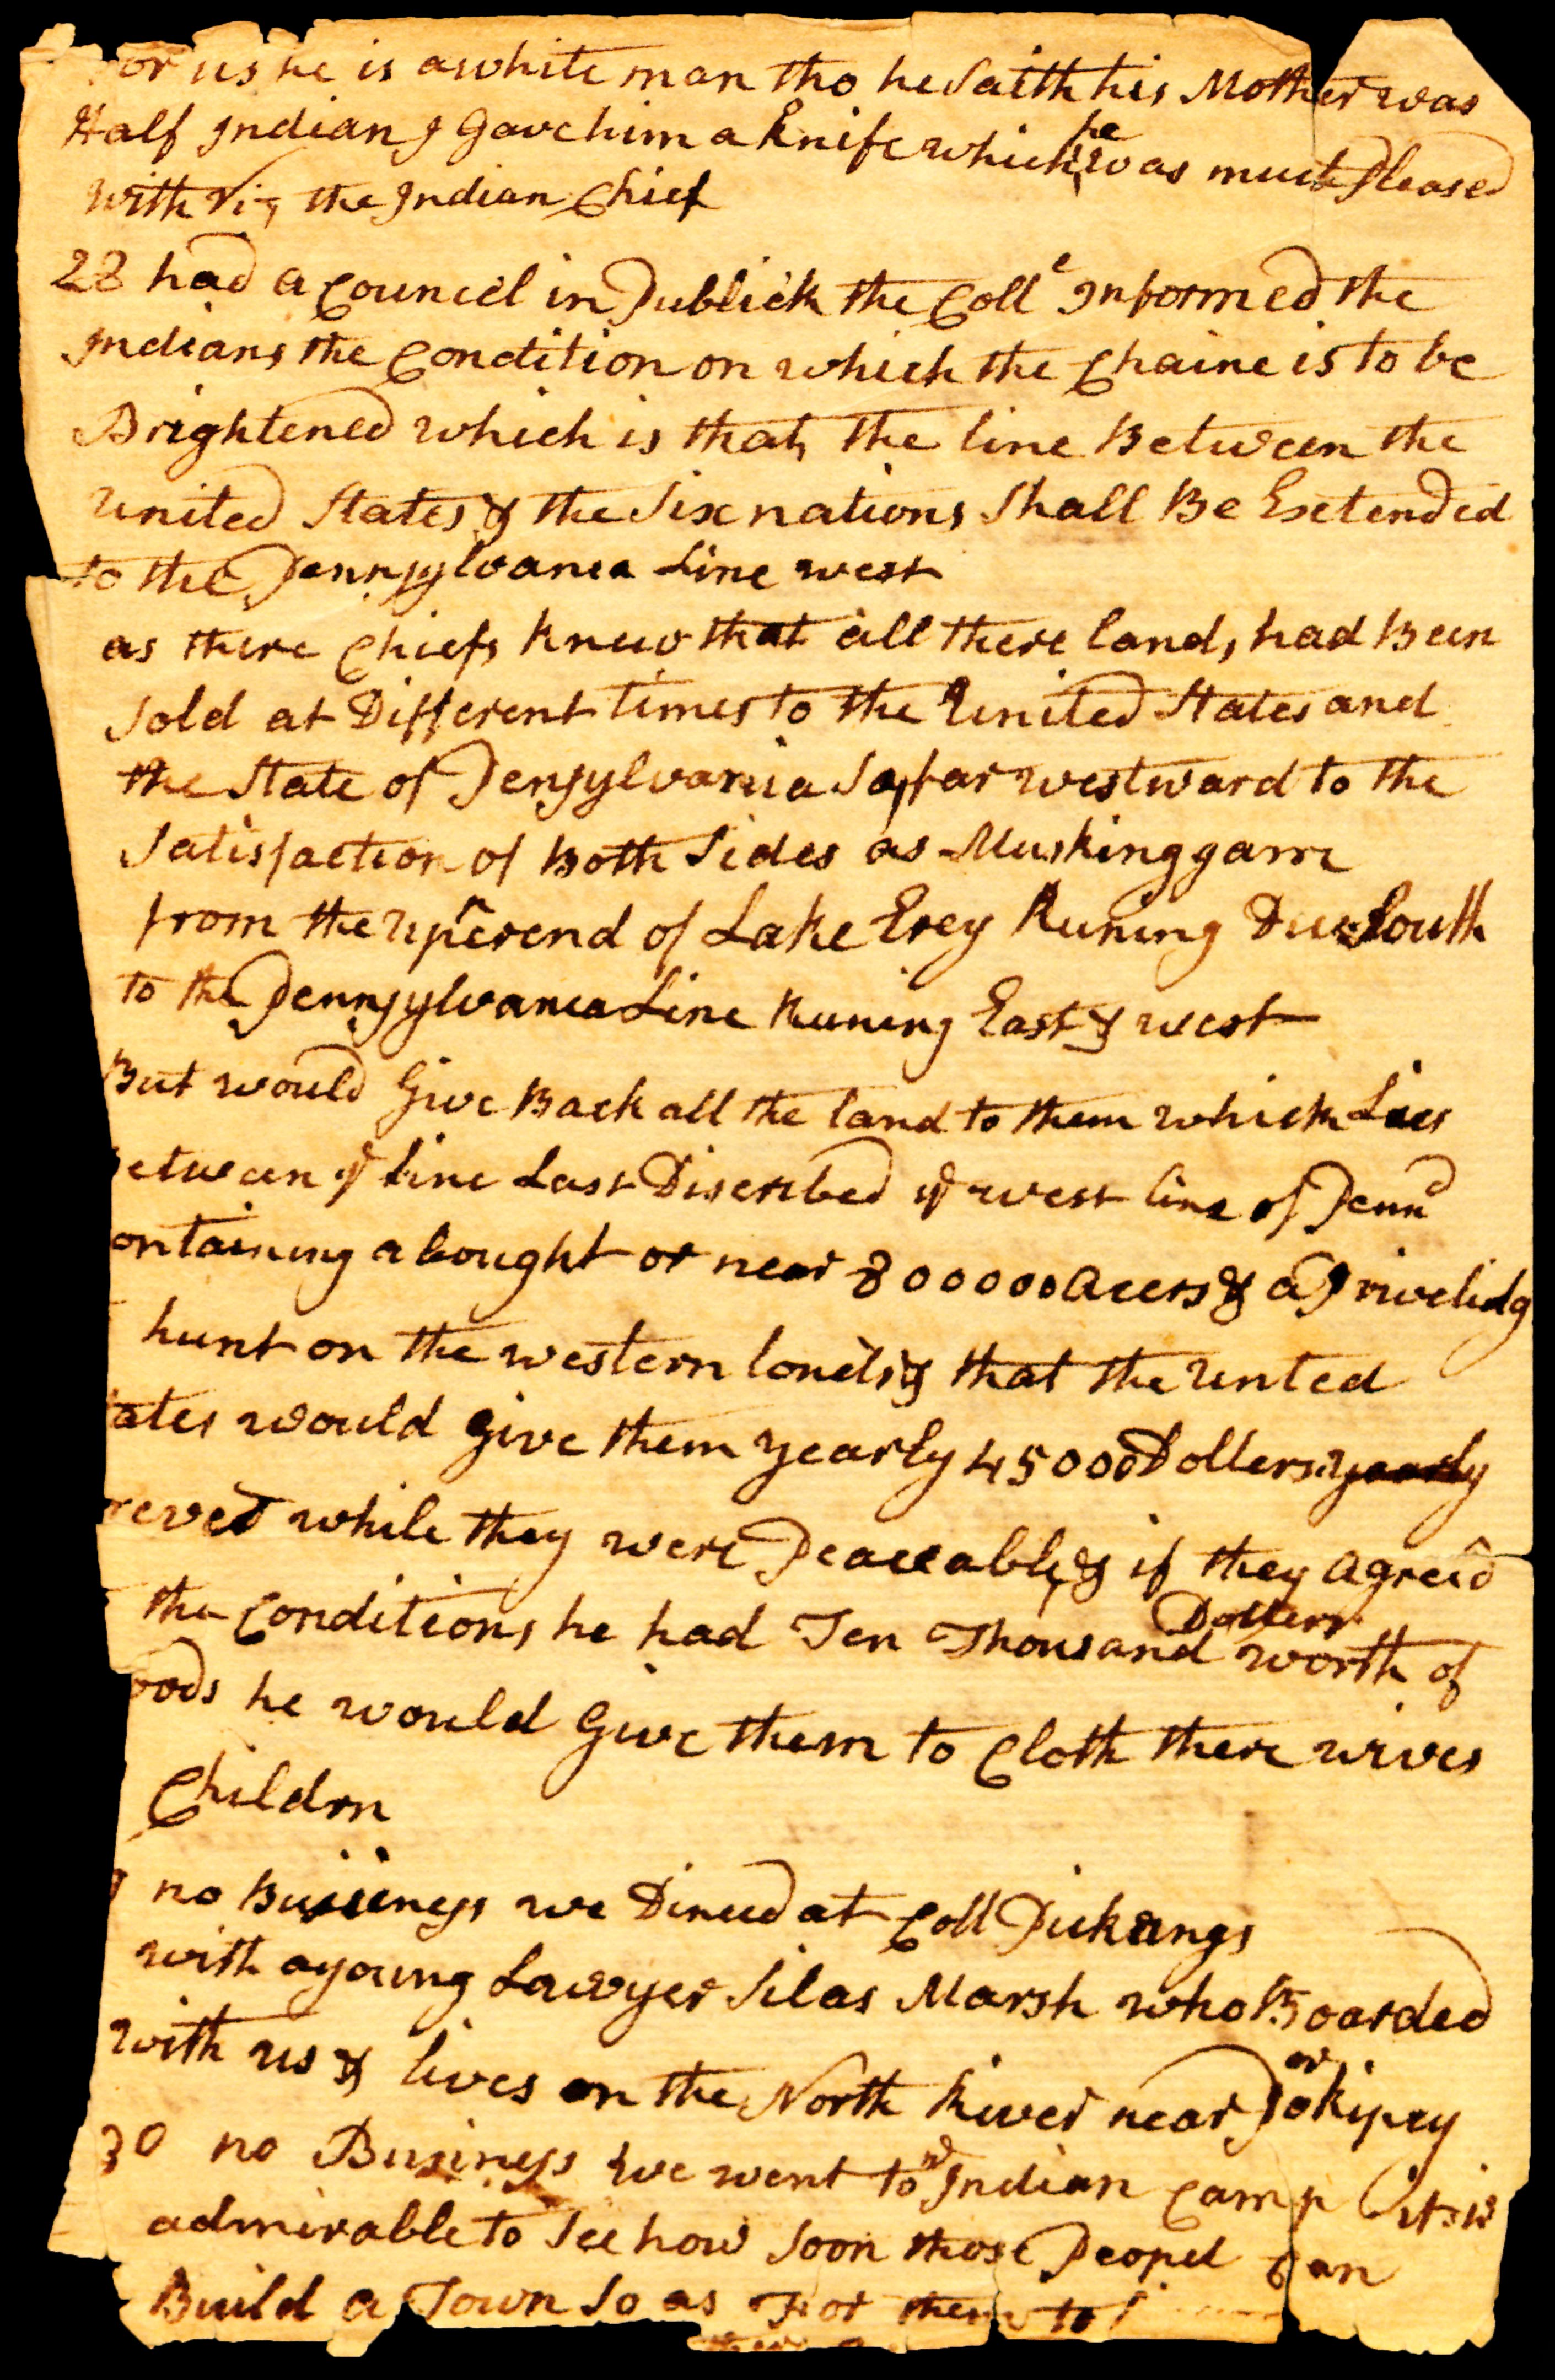 for us he is a white man tho he Saith his Mother was
Half Indian I Gave him a Knife which he was much Pleased
with Viz the Indian Chief
28 had a Council in Publick the Coll Informed the
Indians the Condition on which the Chaine is to be
Brightened which is that the line Between the
United States & the Six nations Shall Be Extended
to the Pennsylvania Line west
as there Chiefs Knew that all there lands had Been
Sold at Different times to the United States and
the State of Pensylvania So far westward to the
Satisfaction of Both Sides as Muskinggam
from the uper end of Lake Erey Runing Due South
to the Pennsylvania Line Runing East & west
But would Give Back all the land to them which Lies
etween ye line Last Discribed & west line of Penn
ontaining abought or near 800000 acers & a Privelidg
hunt on the western lands & that the united
tates would give them yearly 45000 Dollers yearly
rever while they were Peaceable & if they agreed
the Conditions he had Ten Thousand Dollers worth of
oods he would Give them to Cloth there wives
Childrn
no Bussiness we Dined at Coll Pickrings
with a young Lawyer Silas Marsh who Boarded
with us & lives on the North River near Pokipsy
30 no Business we went to ye Indian Camp it is
admirable to See how Soon those Peopel Can
Build a Town So as For them to